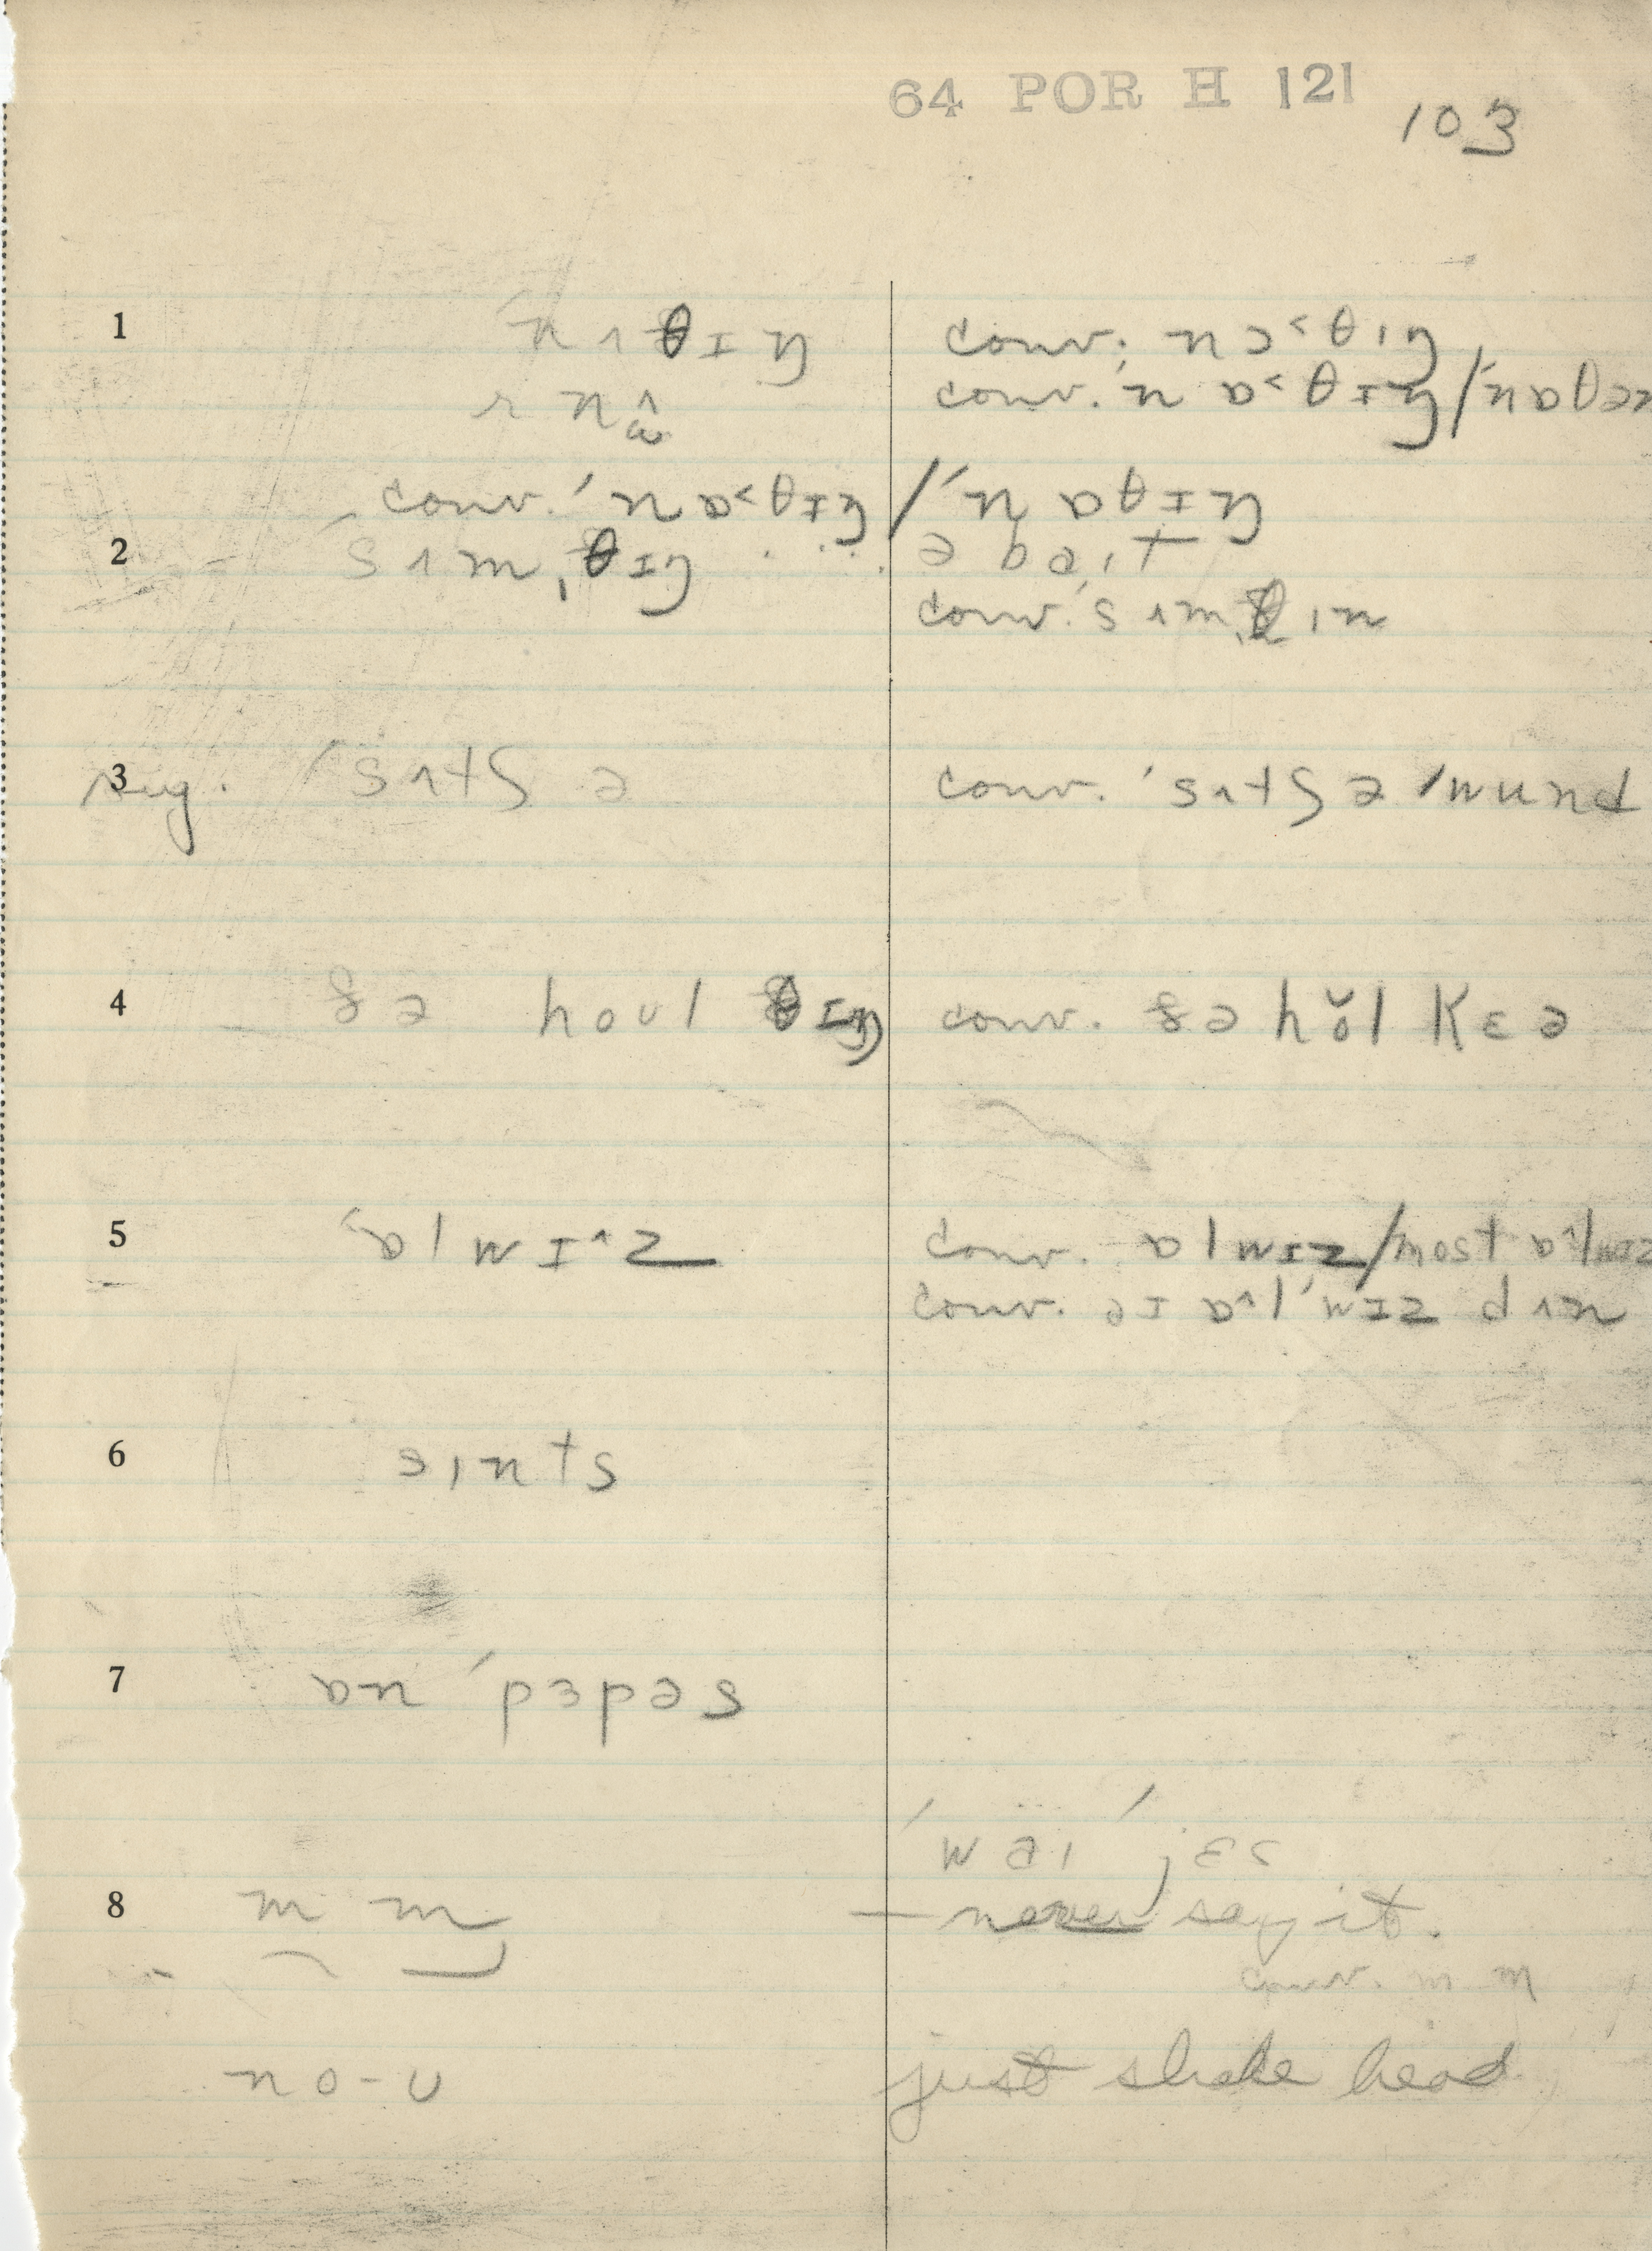 64 POR H 121
103
1 ˈnʌθɪŋ conv. nɔ˂θɪŋ
conv. ˈnɒ˂θɪŋ/ˈnɒθən
conv. ˈnɒ˂θɪŋ/ˈnɒθɪŋ
2 ˈsʌmˌθɪŋ ə baɪt
conv. ˈsʌmˌθɪn
3 sug. ˈsʌtʃ ə conv. ˈsʌtʃ ə ˈwund
4 ðə hoʊl θɪŋ conv. ðə hŏl kɛə
5 ˈɒlwɪ^z conv. ɒlwɪz/most ɒ^lwɪz
conv. əɪ ɒ^lˈwɪz dʌn
6 sɪnts
7 ɒn ˈpɜpəs
ˈwəɪ ˈjɛs
8 m m — never say it.
conv. m m
no-u just shake head